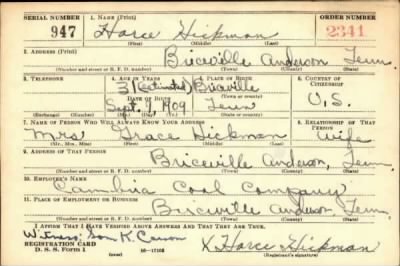 SERIAL NUMBER 1. NAME (Print) ORDER NUMBER
947 Horce Hickman 2341
(First) (Middle) (Last)
2. ADDRESS (Print)
Briceville Anderson Tenn.
(Number and street or R. F. D. number) (Town) (County) (State)
3. TELEPHONE 4. AGE IN YEARS 5. PLACE OF BIRTH 6. COUNTRY OF CITIZENSHIP
31 (estimated) Briceville
DATE OF BIRTH (Town or county)
Sept. 1, 1909 Tenn U.S.
(Mo.) (Day) (Yr.) (State or country)
7. NAME OF PERSON WHO WILL ALWAYS KNOW YOUR ADDRESS 8. RELATIONSHIP OF THAT PERSON
Mrs Grace Hickman Wife
(Mr., Mrs., Miss) (First) (Middle) (Last)
9. ADDRESS OF THAT PERSON
Briceville Anderson, Tenn.
(Number and street or R. F. D. number) (Town) (County) (State)
10. EMPLOYER'S NAME
Cambria Coal Company
11. PLACE OF EMPLOYMENT OR BUSINESS
Briceville Anderson, Tenn.
(Number and street or R. F. D. number) (Town) (County) (State)
I AFFIRM THAT I HAVE VERIFIED ABOVE ANSWERS AND THAT THEY ARE TRUE.
Witness K. Carson
REGISTRATION CARD
D. S. S. Form 1 X Horce Hickman
(Registrant's signature)